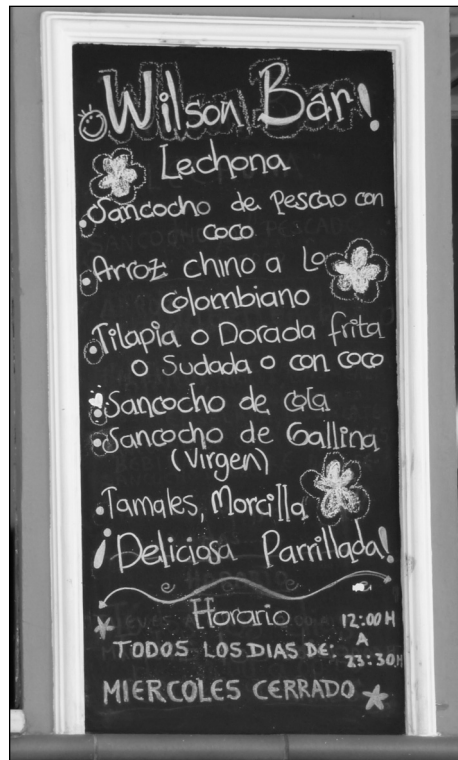 ¡Wilson Bar!
Lechona
• Sancocho de Pescao con
coco
• Arroz chino a Lo
Colombiano
• Tilapia o Dorada frita
o Sudada o con coco
• Sancocho de cola
• Sancocho de Gallina
(Virgen)
• Tamales, Morcilla
¡Deliciosa Parrillada!
Horario
TODOS LOS DIAS DE: 12:00 H
A
23:30 H
MIERCOLES CERRADO